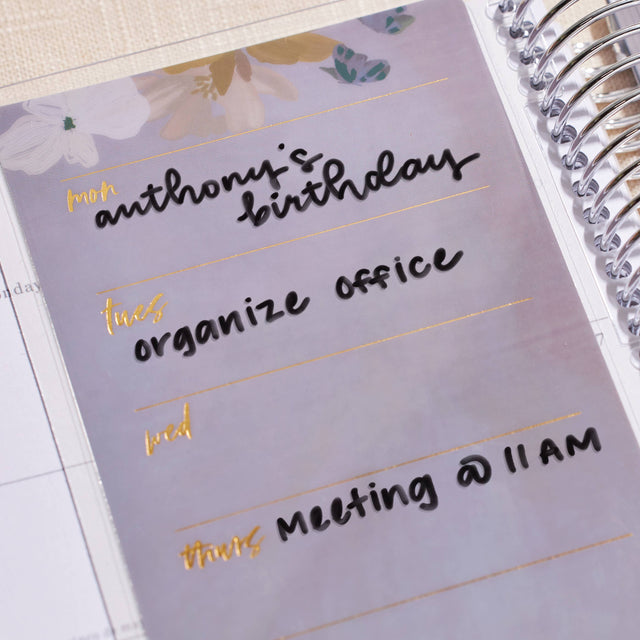 mon
anthony's
birthday
tues
organize office
wed
thurs
Meeting @ 11 AM